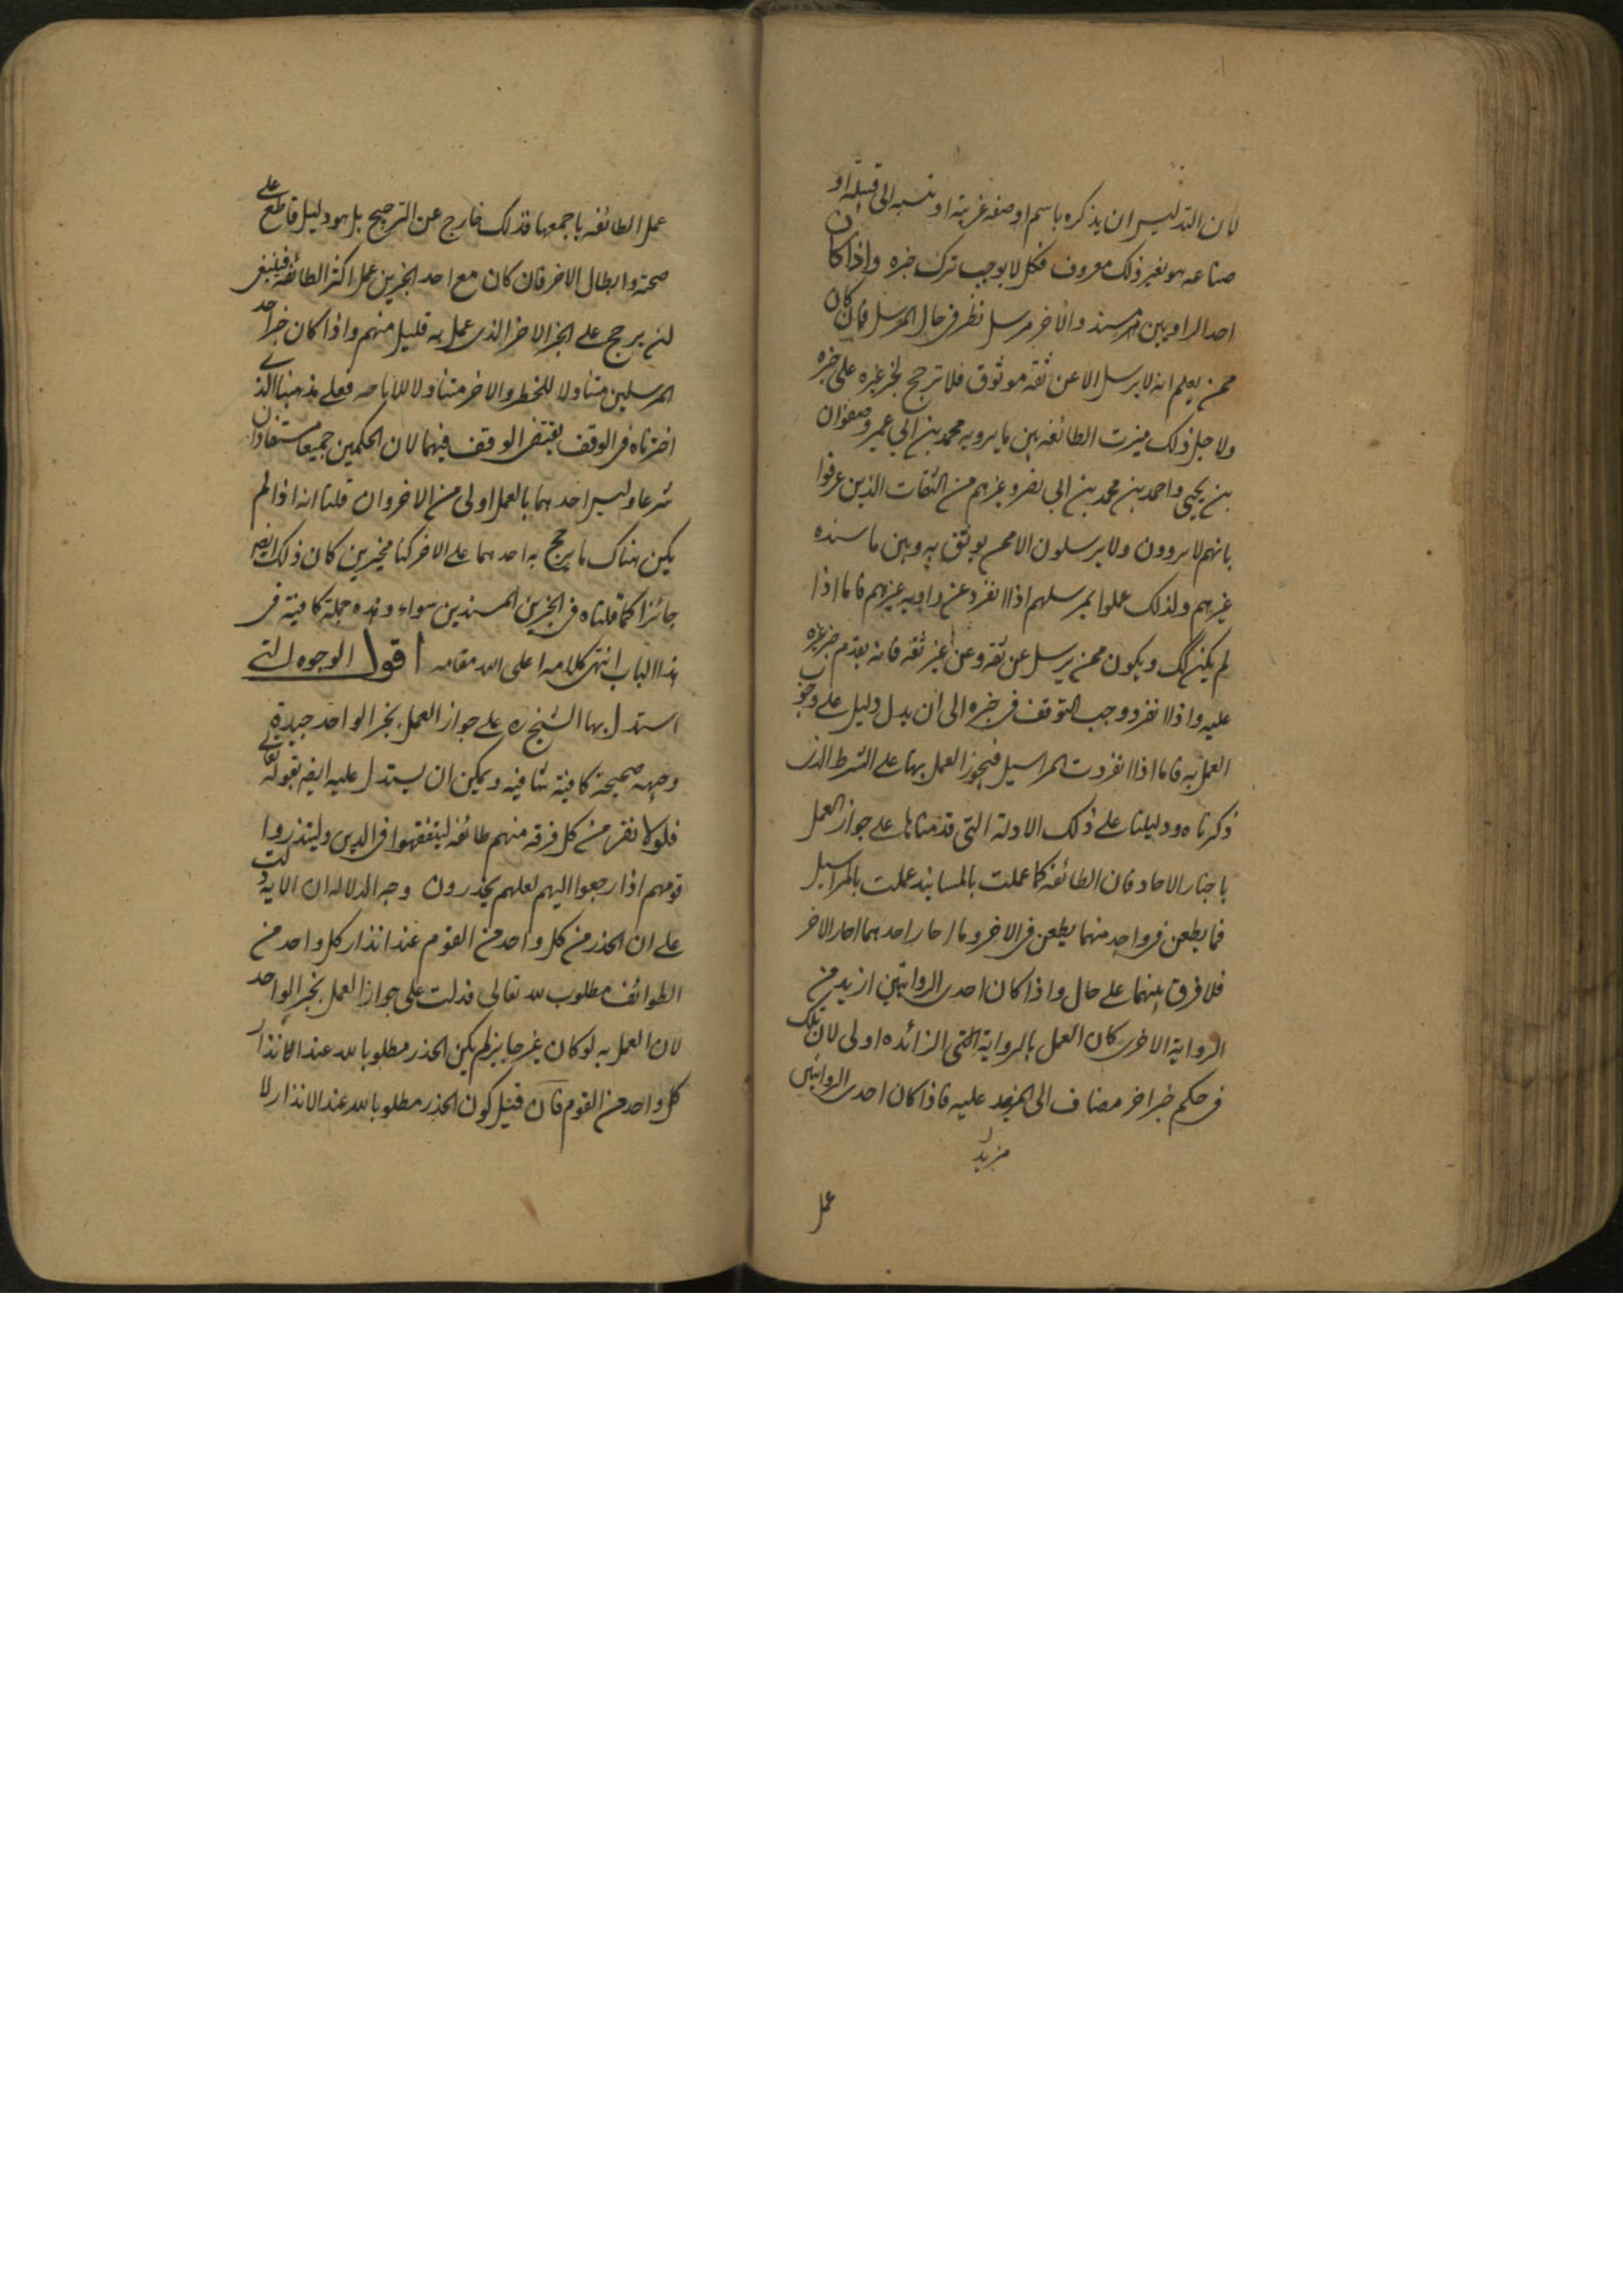 لان التدليس ان يذكره باسم او صفه غريبة او ينسبه الى قبيلة او
صناعه هو بغير ذلك معروف فكل لا يوجب ترك خبره واذا كان
احد الراويين مسند والاخر مرسل نظر فى حال المرسل فان كان
ممن يعلم انه لا يرسل الا عن ثقه موثوق فلا ترجيح لخبر غيره على خبره
ولاجل ذلك ميزت الطائفه بين ما يرويه محمد بن ابي عمير وصفوان
بن يحيى واحمد بن محمد بن ابى نصر وغيرهم من الثقات الذين عرفوا
بانهم لا يروون ولا يرسلون الا ممن يوثق به وبين ما سنده
غيرهم ولذلك عملوا بمرسلهم اذا انفرد عن رواية غيرهم فاما اذا
لم يكن كك ويكون ممن يرسل عن ثقه وعن غير ثقه فانه يقدم خبر غيره
عليه واذا انفرد وجب التوقف فى خبره الى ان يدل دليل على وجوب
العمل به فاما اذا انفردت المراسيل فيجوز العمل بها على الشرط الذى
ذكرناه ودليلنا على ذلك الادلة التى قدمناها على جواز العمل
باخبار الاحاد فان الطائفه كما عملت بالمسانيد عملت بالمراسيل
فما يطعن فى واحد منهما يطعن فى الاخر وما اجاز احدهما اجاز الاخر
فلا فرق بينهما على حال واذا كان احدى الروايتين ازيد من
الرواية الاخرى كان العمل بالرواية التى الزائده اولى لان تلك
فى حكم خبر اخر مضاف الى المزيد عليه فاذا كان احدى الروايتين
مزيد
عمل
عمل الطائفه باجمعها فذلك خارج عن الترجيح بل هو دليل قاطع على
صحته وابطال الاخر فان كان مع احد الخبرين عمل اكثر الطائفه فينبغى
لنا يرجح على الخبر الاخر الذى عمل به قليل منهم واذا كان خبر احد
المرسلين متناولا للحظر والاخر متناولا للاباحه فعلى مذهبنا الذى
اخترناه فى الوقف يقتضى الوقف فيهما لان الحكمين جميعا مستفادان
شرعا وليس احدهما بالعمل اولى من الاخر وان قلنا انه اذا لم
يكن هناك ما يرجح به احدهما على الاخر كنا مخيرين كان ذلك ايضا
جائزا كما قلناه فى الخبرين المسندين سواء وهذه جملة كافية فى
هذا الباب انتهى كلامه اعلى الله مقامه اقول الوجوه التى
استدل بها الشيخ ره على جواز العمل بخبر الواحد جيدة
وجهه صحيحة كافية شافيه ويمكن ان يستدل عليه ايضا بقوله تعالى
فلولا نفر من كل فرقه منهم طائفه ليتفقهوا فى الدين ولينذروا
قومهم اذا رجعوا اليهم لعلهم يحذرون وجه الدلاله ان الايه دلت
على ان الحذر من كل واحد من القوم عند انذار كل واحد من
الطوائف مطلوب لله تعالى فدلت على جواز العمل بخبر الواحد
لان العمل به لو كان غير جايز لم يكن الحذر مطلوبا لله عند الانذار
كل واحد من القوم فان قيل كون الحذر مطلوبا لله عند الانذار لا